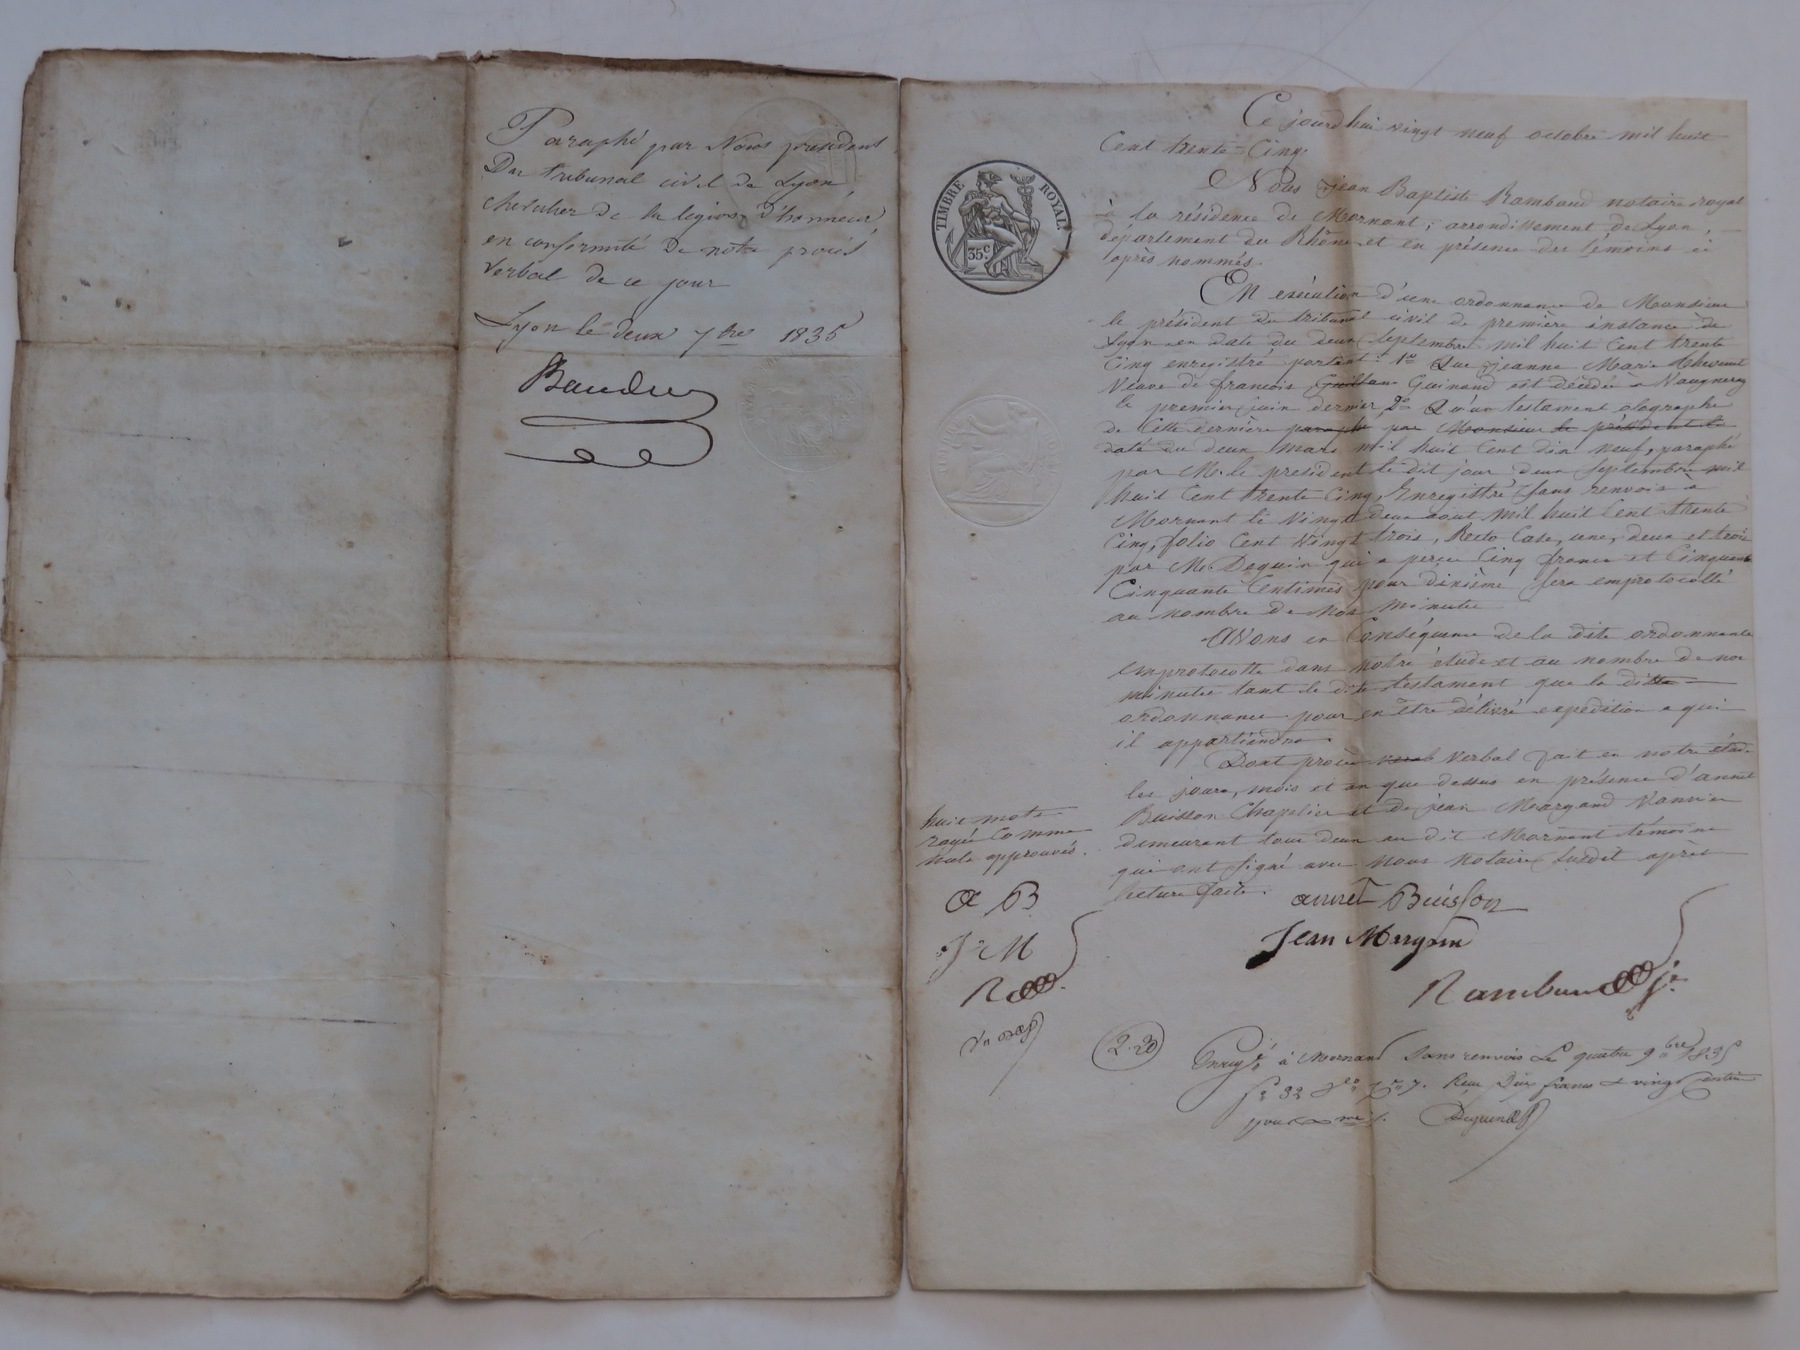 Paraphé par Nous president
Du tribunal civil de Lyon,
chevalier de la legion d'honneur,
en conformité de notre procès
verbal de ce jour
Lyon le deux 7bre 1835
TIMBRE ROYAL
35c.
Ce jourd'hui vingt neuf octobre mil huit
Cent trente-Cinq.
Nous jean Baptiste Rambaud notaire royal
à la résidence de Mornant, arrondissement de Lyon,
département du Rhône et en présence des témoins ci
après nommés.
En exécution d'une ordonnance de Monsieur
le président du tribunal civil de première instance de
Lyon en date du deux Septembre mil huit Cent trente
Cinq enregistré portant: 1o Que jeanne Marie
Veuve de francois Guinand est décédée a Vaugneray
le premier juin dernier 2o Qu'un testament olographe
de Cette dernière paraphé par Monsieur le président le
daté du deux Mars mil huit Cent dix Neuf, paraphé
par Mr le president le dit jour deux Septembre mil
huit Cent trente Cinq, Enregistré Sans renvois à
Mornant le Vingt deux aout Mil huit Cent trente
Cinq, folio Cent Vingt trois, Recto Case, une, deux et trois
par Mr Dequin qui a perçu Cinq francs et Cinquante
Cinquante Centimes pour dixième Sera emprotocollé
au nombre de Nos Minutes
Avons en Conséquence de la dite ordonnance
emprotocollé dans notre étude et au nombre de nos
minutes tant le dit testament que la ditte
ordonnance pour en être délivré expedition a qui
il appartiendra.
Dont procès verb verbal fait en notre étude
les jours, mois et an que dessus en présence d'annet
Buisson Chapelier et de jean Margand Vannier
demeurant tous deux au dit Mornant témoins
qui ont Signé avec Nous Notaire Susdit après
lecture faite.
huit mots
rayés Comme
nuls approuvés.
a B
J M
R
annet Buisson
Jean
Rambaud
2.20
Enregtré à Mornant Sans renvois Le quatre 9bre 1835
fo 32 Reçu Deux francs & vingt Centimes
pour Dequin